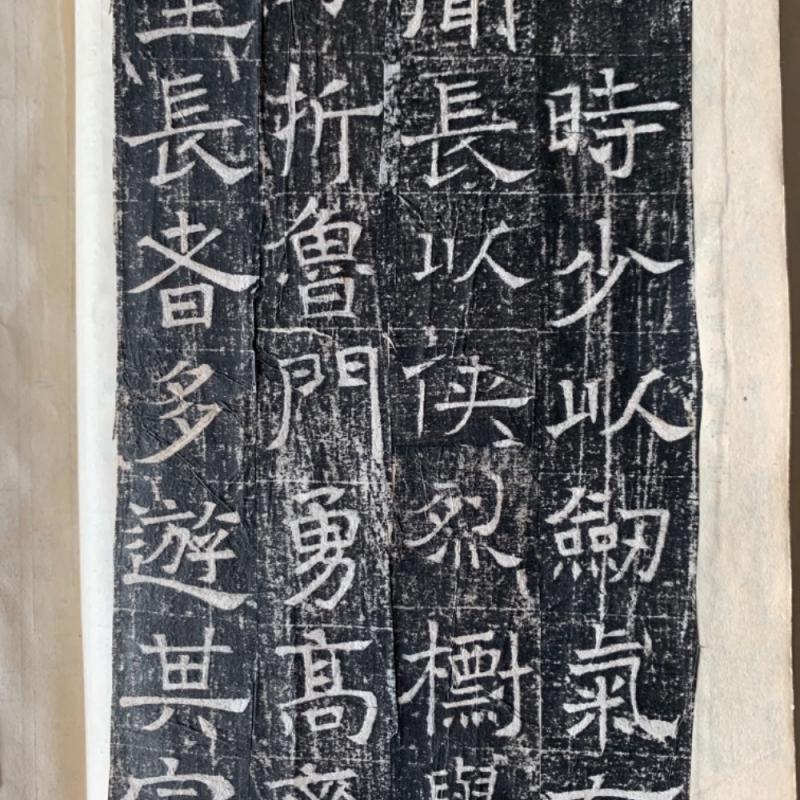 時少以劒氣
聞長以俠烈
折魯門勇高齊
長者多遊其